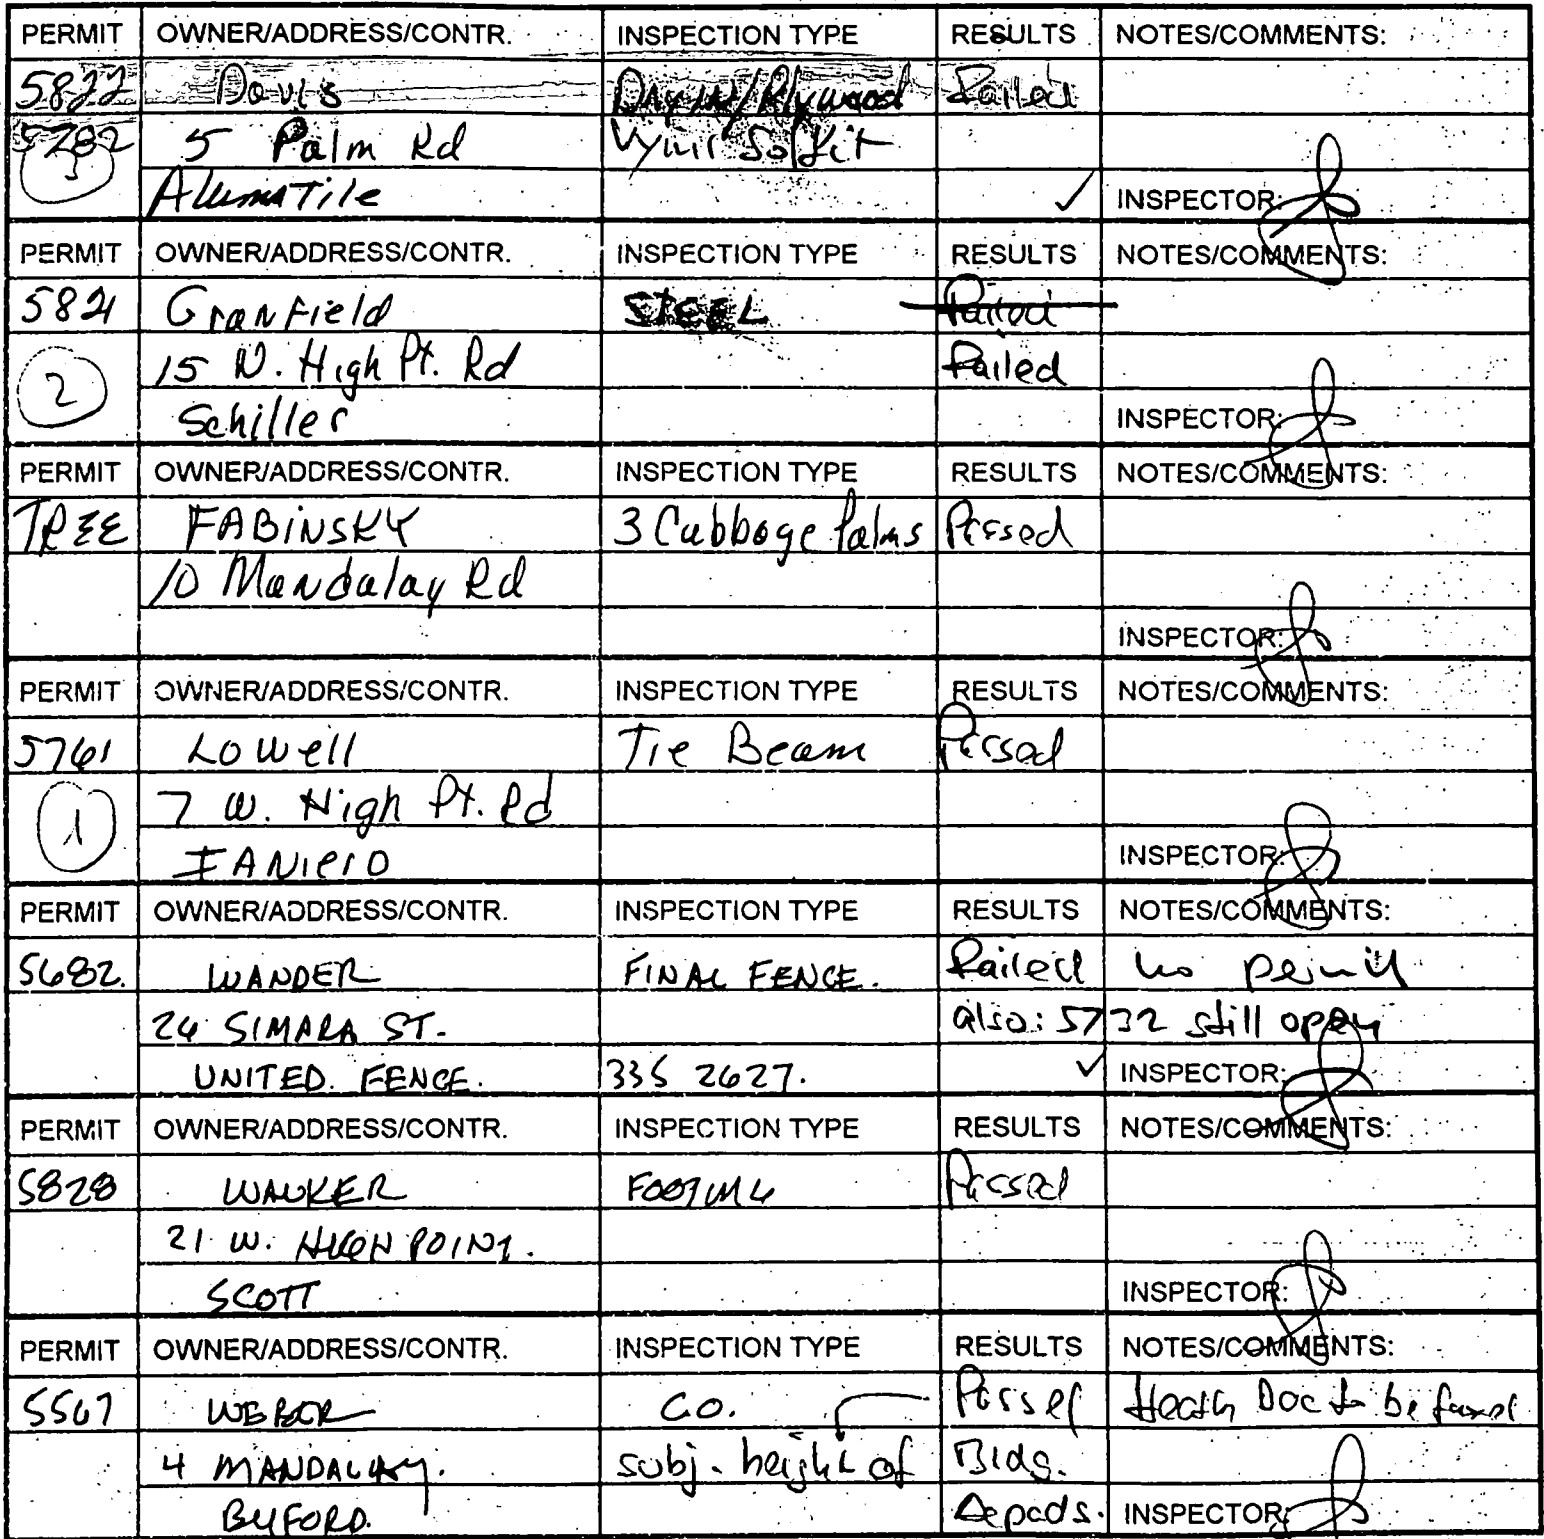 PERMIT OWNER/ADDRESS/CONTR. INSPECTION TYPE RESULTS NOTES/COMMENTS:
5822 Davis Dry in/Plywood Failed
5782 5 Palm Rd Vynil Soffit
AlumaTile ✓ INSPECTOR:
PERMIT OWNER/ADDRESS/CONTR. INSPECTION TYPE RESULTS NOTES/COMMENTS:
5821 Granfield STEEL Failed
2 15 N. High Pt. Rd Failed
Schiller INSPECTOR:
PERMIT OWNER/ADDRESS/CONTR. INSPECTION TYPE RESULTS NOTES/COMMENTS:
TREE FABINSKY 3 Cabbage Palms Passed
10 Mandalay Rd
INSPECTOR:
PERMIT OWNER/ADDRESS/CONTR. INSPECTION TYPE RESULTS NOTES/COMMENTS:
5761 Lowell Tie Beam Passed
1 7 W. High Pt. Rd
IANIERO INSPECTOR:
PERMIT OWNER/ADDRESS/CONTR. INSPECTION TYPE RESULTS NOTES/COMMENTS:
5682. WANDER FINAL FENCE. Failed no permit
26 SIMARA ST. also: 5732 still open
UNITED FENCE. 335 2627. ✓ INSPECTOR:
PERMIT OWNER/ADDRESS/CONTR. INSPECTION TYPE RESULTS NOTES/COMMENTS:
5828 WALKER FOOTING Passed
21 W. HIGH POINT.
SCOTT INSPECTOR:
PERMIT OWNER/ADDRESS/CONTR. INSPECTION TYPE RESULTS NOTES/COMMENTS:
5567 WEBER C.O. Passed Health Doc to be faxed
4 MANDALAY. subj. height of Bldg.
BUFORD. INSPECTOR: